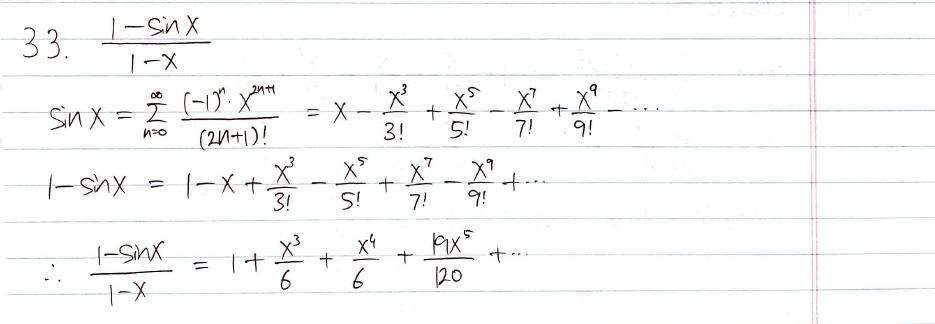 33. (1-sin x)/(1-x)
sin x = ∑_{n=0}^{∞} ((-1)^n · x^{2n+1})/((2n+1)!) = x - x^3/3! + x^5/5! - x^7/7! + x^9/9! - ...
1-sin x = 1-x + x^3/3! - x^5/5! + x^7/7! - x^9/9! + ...
∴ (1-sin x)/(1-x) = 1 + x^3/6 + x^4/6 + 19x^5/120 + ...